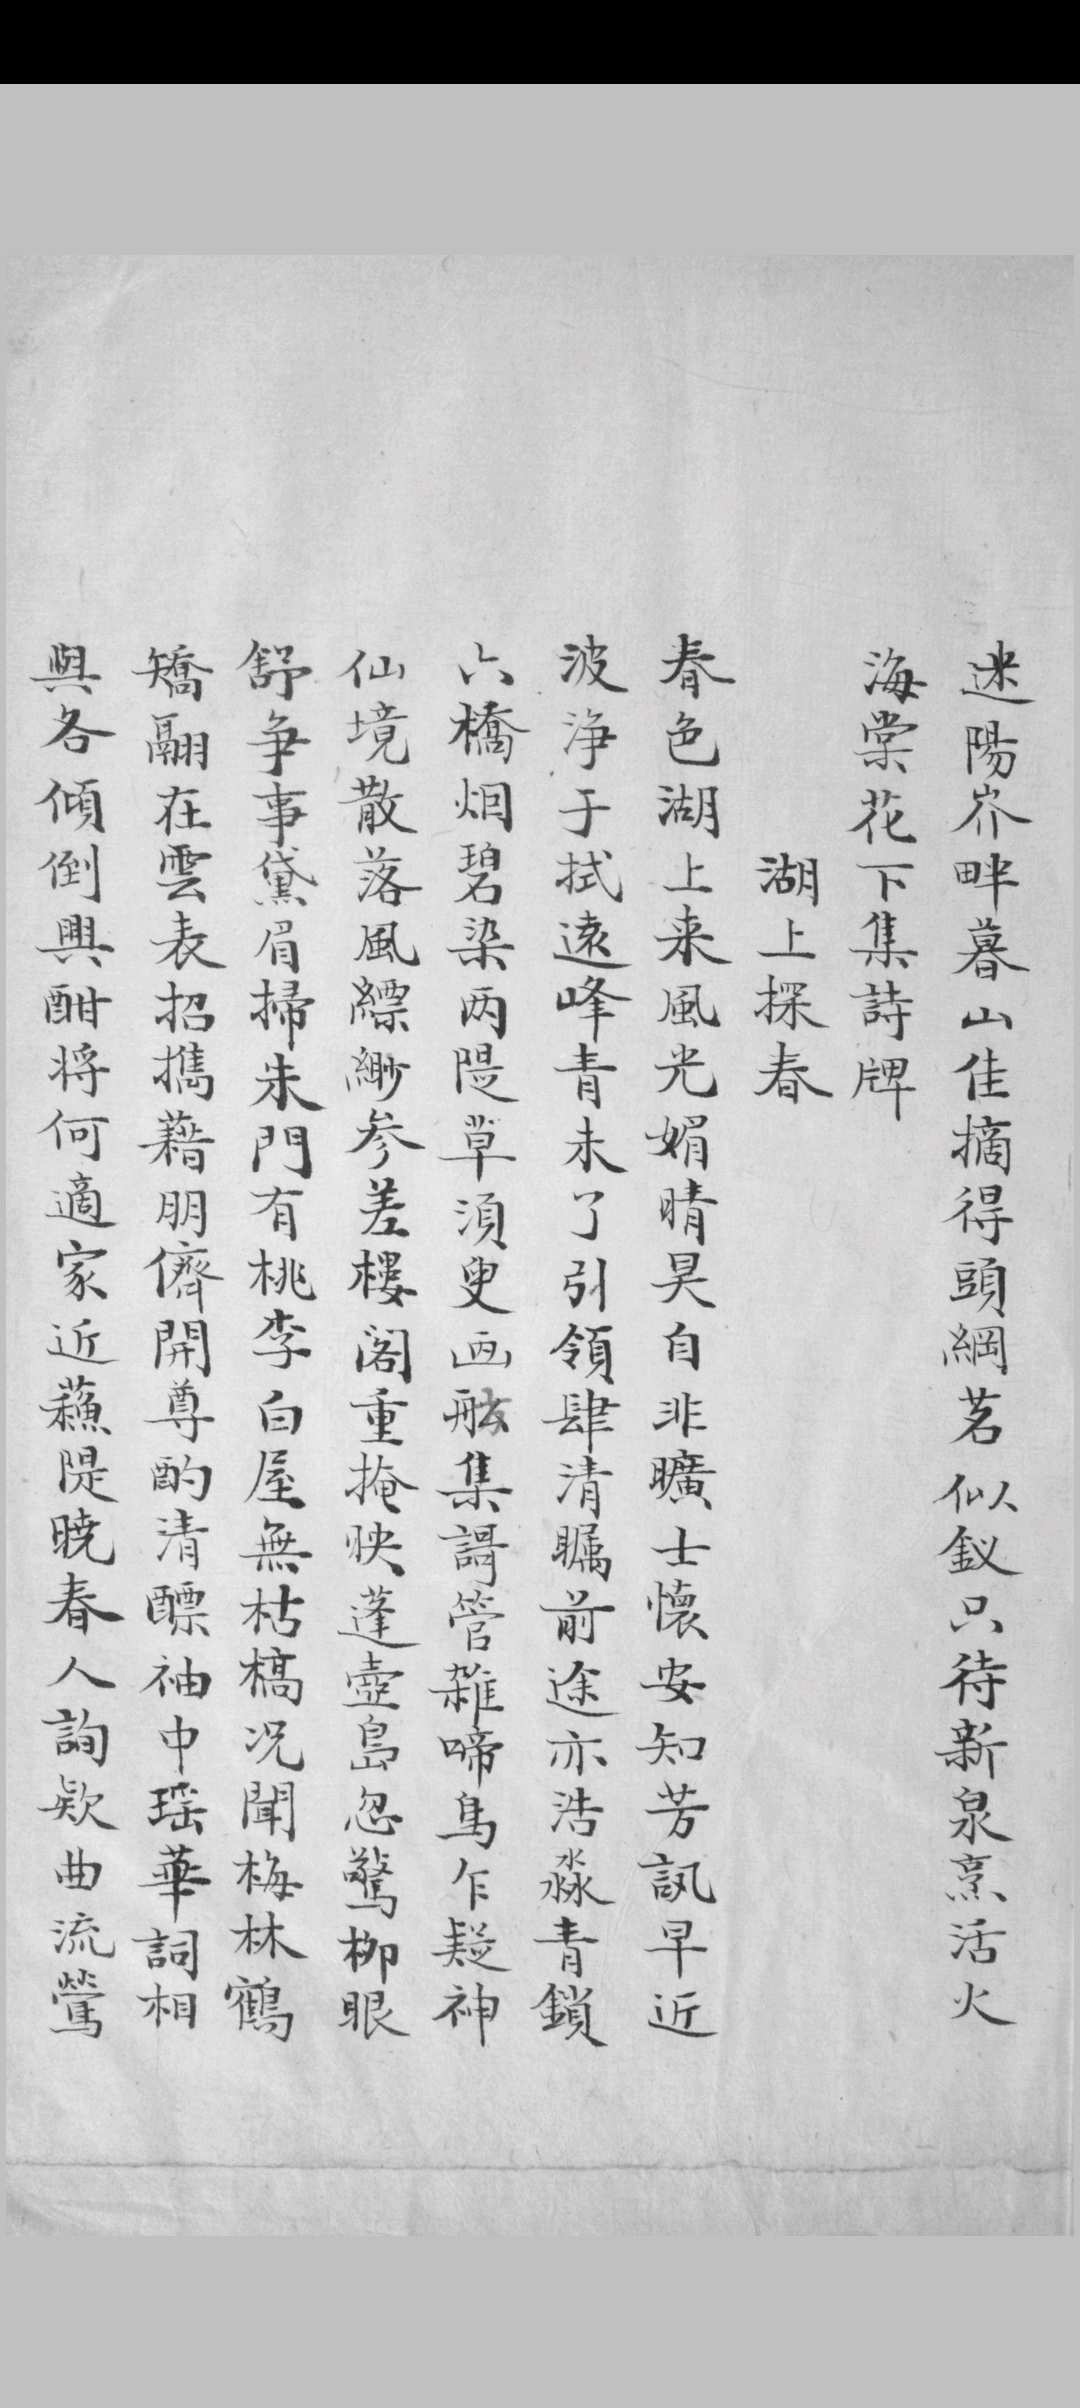 迷陽岕畔暮山佳摘得頭綱茗似釵只待新泉烹活火
海棠花下集詩牌
湖上探春
春色湖上来風光媚晴昊自非曠士懷安知芳訊早近
波浄于拭遠峰青未了引領肆清矚前途亦浩淼青鎖
六橋烟碧染两隄草湏叟画舷集謌管雜啼鳥乍疑神
仙境散落風縹緲参差樓阁重掩映蓬壺島忽驚柳眼
舒争事黛眉掃朱門有桃李白屋無枯槁况聞梅林鶴
矯翮在雲表招携藉朋儕開尊酌清醥袖中瑶華詞相
與各傾倒興酣将何適家近蘓隄曉春人詢欵曲流鶯